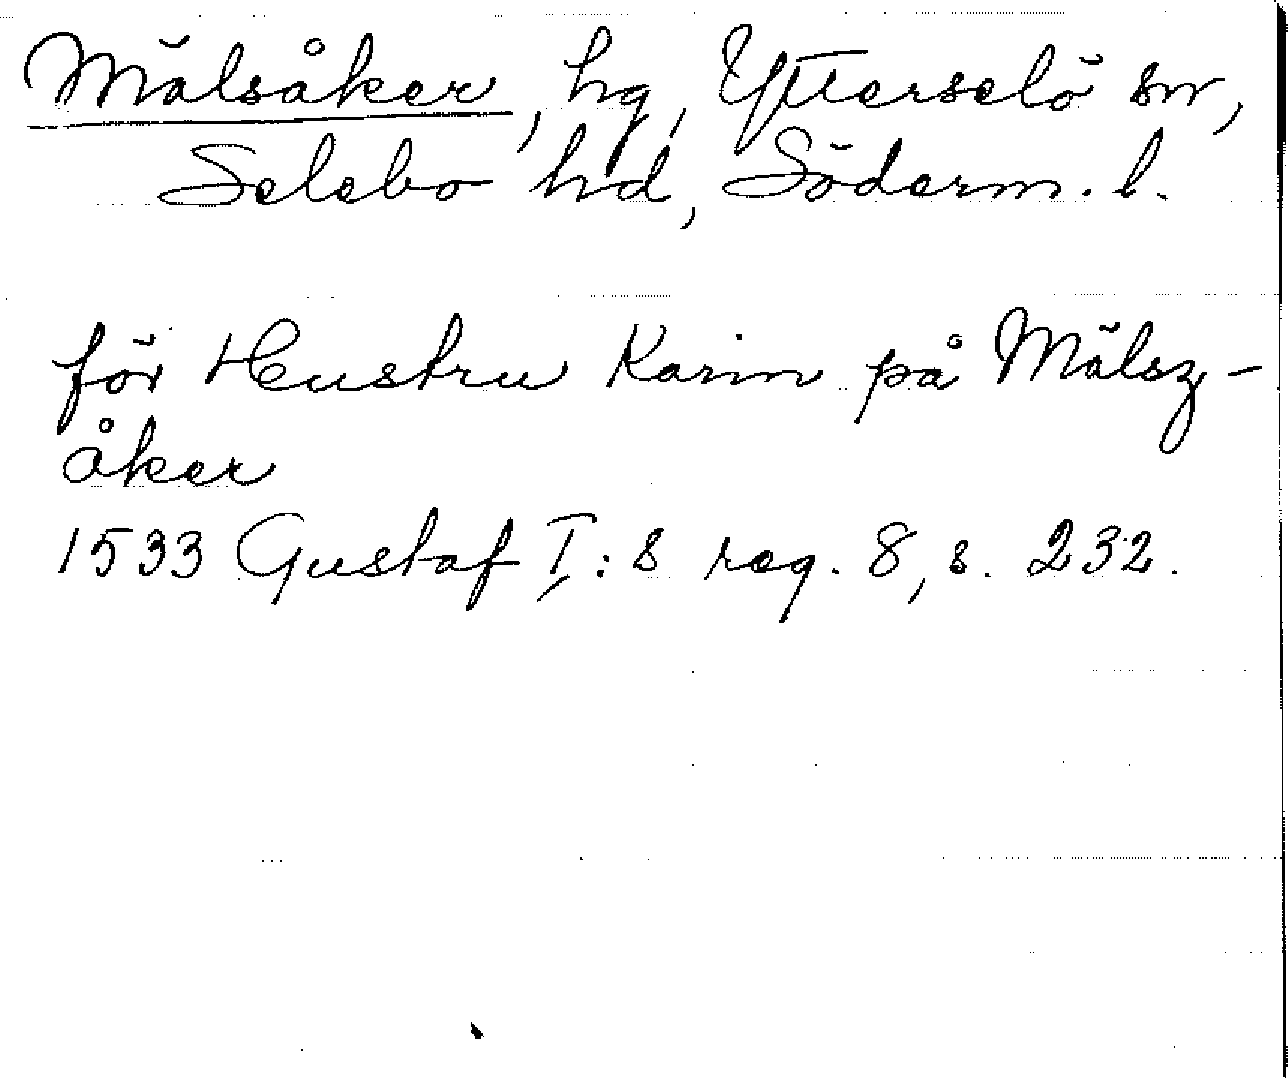 Mälsåker, hg, Ytterselö sn,
Selebo hd, Söderm. l.
för Hustru Karin på Mälsz-
åker
1533 Gustaf I:s reg. 8, s. 232.